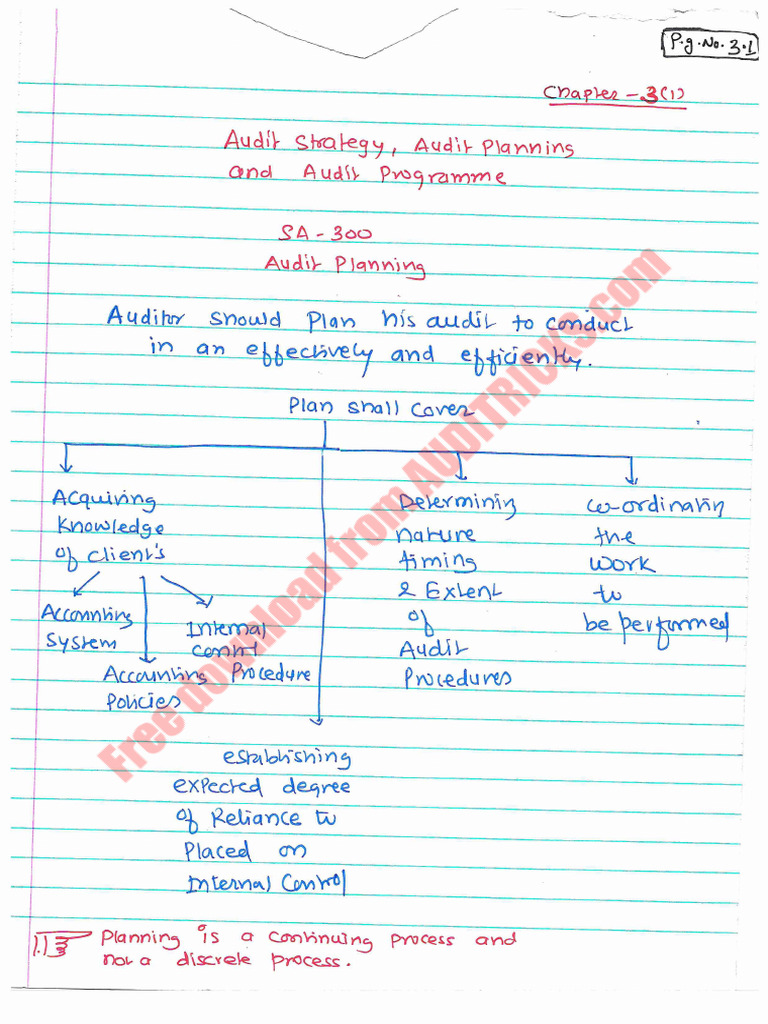 P.g.No. 3.1
Chapter - 3(1)
Audit Strategy, Audit Planning
and Audit Programme
SA - 300
Audit Planning
Auditor should plan his audit to conduct
in an effectively and efficiently.
Plan shall cover
Acquiring
Knowledge
of client's
Accounting
System
Accounting
Policies
Internal
Control
Procedure
establishing
expected degree
of Reliance to
Placed on
Internal Control
Determining
nature
timing
& Extent
of
Audit
Procedures
co-ordinating
the
work
to
be performed
1.1 Planning is a continuing process and
not a discrete process.
Free download from AUDITRICKS.com